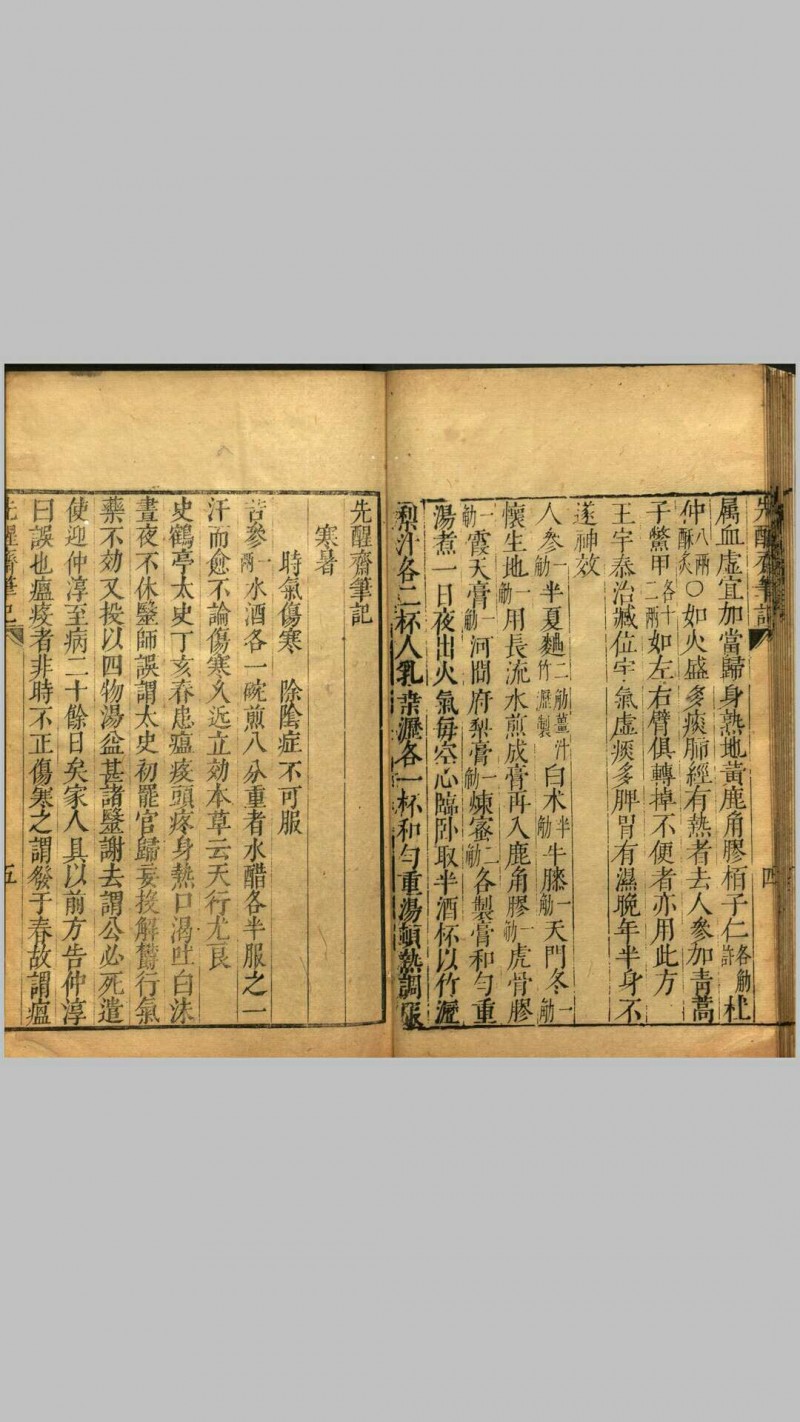 先醒齋筆記
四
属血虛宜加當歸身熟地黃鹿角膠栢子仁各觔許杜
仲八兩酥炙〇如火盛多痰肺經有熱者去人參加青蒿
子鱉甲各十二兩如左右臂俱轉掉不便者亦用此方
王宇泰治臧位宇氣虛痰多脾胃有濕晚年半身不
遂神效
人參一觔半夏麯二觔薑汁竹瀝製白术半觔牛膝一觔天門冬一觔
懷生地一觔用長流水煎成膏再入鹿角膠一觔虎骨膠
一觔霞天膏一觔河間府梨膏一觔煉蜜二觔各製膏和勻重
湯煮一日夜出火氣每空心臨卧取半酒杯以竹瀝
梨汁各二杯人乳桑瀝各一杯和勻重湯頓熱調服
先醒齋筆記
寒暑
時氣傷寒　除陰症不可服
苦參一兩水酒各一碗煎八分重者水醋各半服之一
汗而愈不論傷寒久近立効本草云天行尤良
史鶴亭太史丁亥春患瘟疫頭疼身熱口渴吐白沫
晝夜不休醫師誤謂太史初罷官歸妄投解鬱行氣
藥不効又投以四物湯益甚諸醫謝去謂公必死遣
使迎仲淳至病二十餘日矣家人具以前方告仲淳
曰誤也瘟疫者非時不正傷寒之謂發于春故謂瘟
先醒齋筆記
五